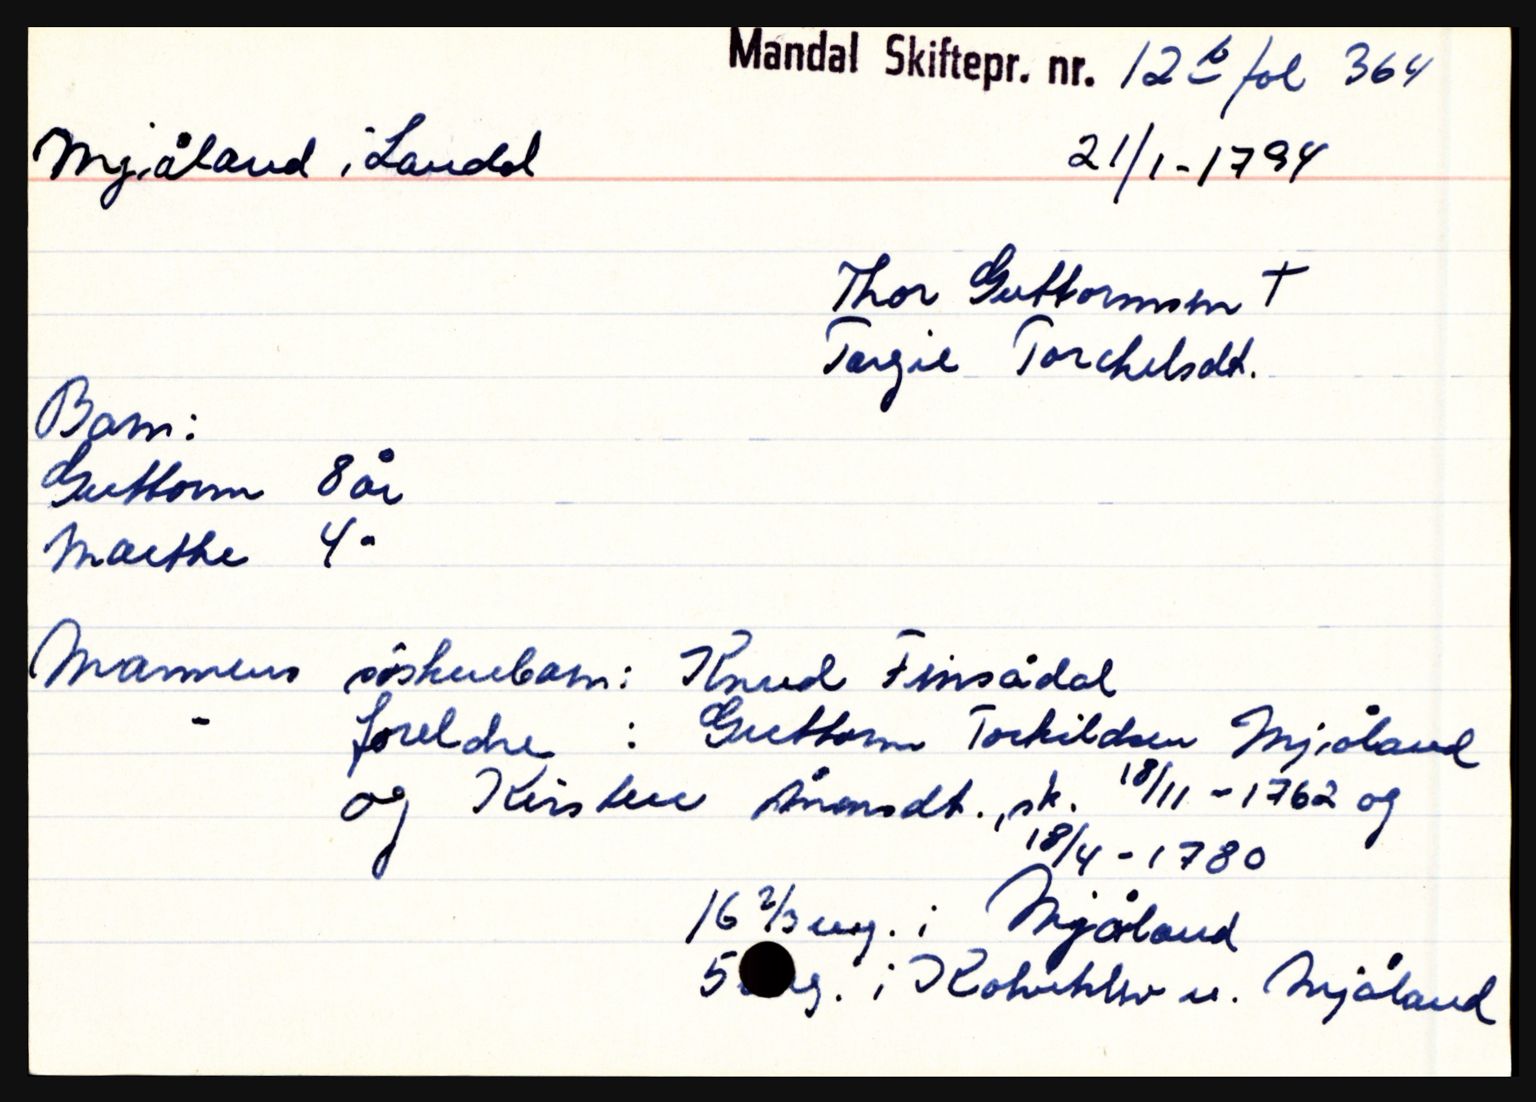 Mandal Skiftepr. nr. 12 b fol 364
Mjåland i Laudal 21/1-1794
Thor Guttormsen †
Targie Torchelsdt.
Barn:
Guttorm 8 år
Marthe 4 "
Mannens söskenbarn: Knud Finsådal
" foreldre : Guttorm Torkildsen Mjåland
og Kirsten Ånonsdt., sk. 18/11-1762 og
18/4-1780
16 2/3 eng. i Mjåland
5 eng. i u. Mjåland